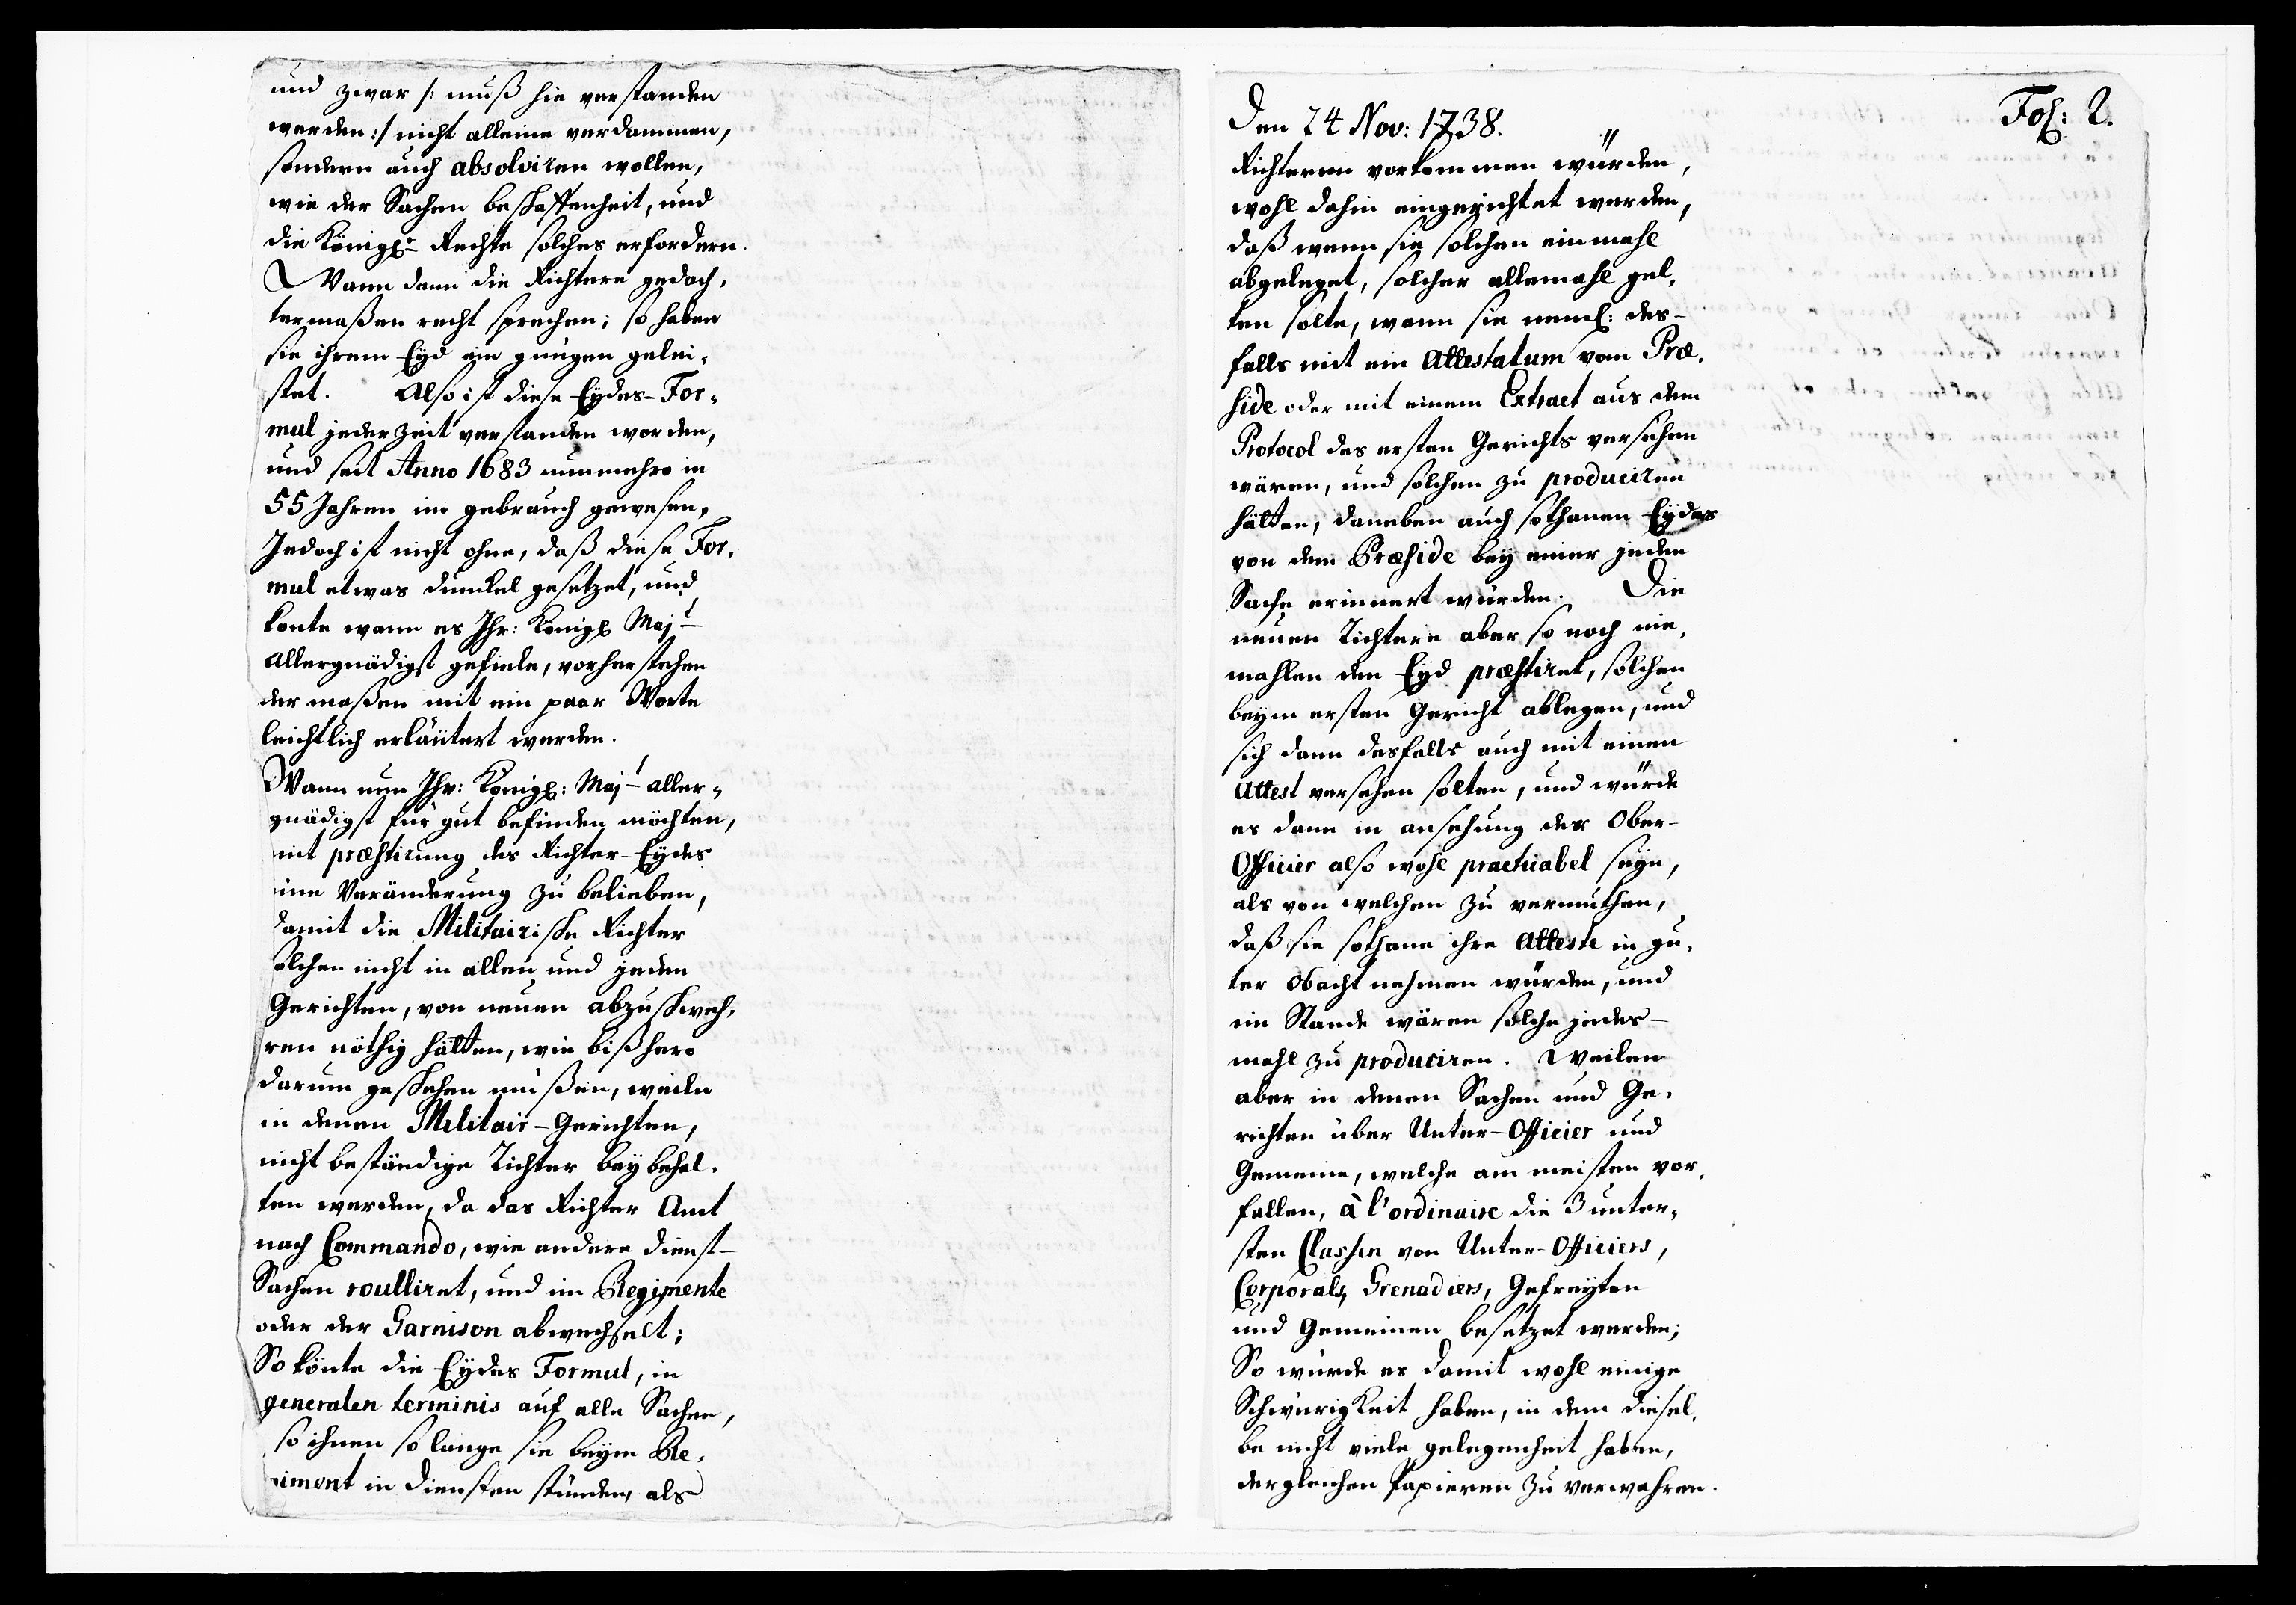 und zwar /: muß hie verstanden
werden :/ nicht alleine verdammen,
sondern auch absolviren wollen,
wie der Sachen beschaffenheit, und
die Königl: Rechte solches erfordern.
Wann dann die Richtere gedach,
termaßen recht sprechen; so haben
sie ihrem Eyd ein gnügen gelei,
stet. Also ist diese Eydes-For,
mul jederzeit verstanden worden,
und seit Anno 1683 nunmehro in
55 Jahren im gebrauch gewesen,
Jedoch ist nicht ohne, daß diese For,
mul etwas dunckel gesetzet, und
konte wann es Ihr: Königl Majt
allergnädigst gefiele, vorherstehen
der maßen mit ein paar Worte
leichtlich erläutert werden.
Wann nun Ihr: Königl: Majt aller,
gnädigst für gut befinden möchten,
mit præstirung des Richter-Eydes
eine Veränderung zu belieben,
damit die Militairische Richter
solchen nicht in allen und jeden
Gerichten, von neuen abzuschweh,
ren nöthig hätten, wie bißhero
darum geschehen müßen, weiln
in denen Militair-Gerichten,
nicht beständige Richter beybehal,
ten werden, da das Richter Amt
nach Commando, wie andere Dienst-
Sachen roulliret, und im Regimente
oder der Garnison abwechselt;
So könte die Eydes Formul, in
generalen terminis auf alle Sachen,
so ihnen so lange sie beym Re,
giment in Diensten stünden, als
Den 24 Nov: 1738.
Fol: 2.
Richteren vorkommen würden,
wohl dahin eingerichtet werden,
daß wenn sie solchen einmahl
abgeleget, solcher allemahl gel,
ten solte, wann sie neml: des-
falls mit ein Attestatum vom Præ,
side oder mit einem Extract aus dem
Protocol des ersten Gerichts versehen
wären, und solchen zu produciren
hätten, daneben auch sothanen Eydes
von dem Præside bey einer jeden
Sache erinnert würden. Die
neuen Richtere aber so noch nie,
mahlen den Eyd præstiret, solchen
beym ersten Gericht ablegen, und
sich dann desfalls auch mit einen
Attest versehen solten, und würde
es dann in ansehung der Ober-
Officier also wohl practicabel seyn,
als von welchen zu vermuthen,
daß sie sothane ihre Atteste in gu,
ter Obacht nehmen würden, und
im Stande wären solche jedes-
mahl zu produciren. Weilen
aber in denen Sachen und Ge,
richten über Unter-Officier und
Gemeine, welche am meisten vor,
fallen, à l'ordinaire die 3 unter,
sten Classen von Unter-Officiers,
Corporals, Grenadiers, Gefreyten
und Gemeinen besetzet werden;
So würde es damit wohl einige
Schwürigkeit haben, in dem diesel,
be nicht viele gelegenheit haben,
dergleichen Papieren zu verwahren.